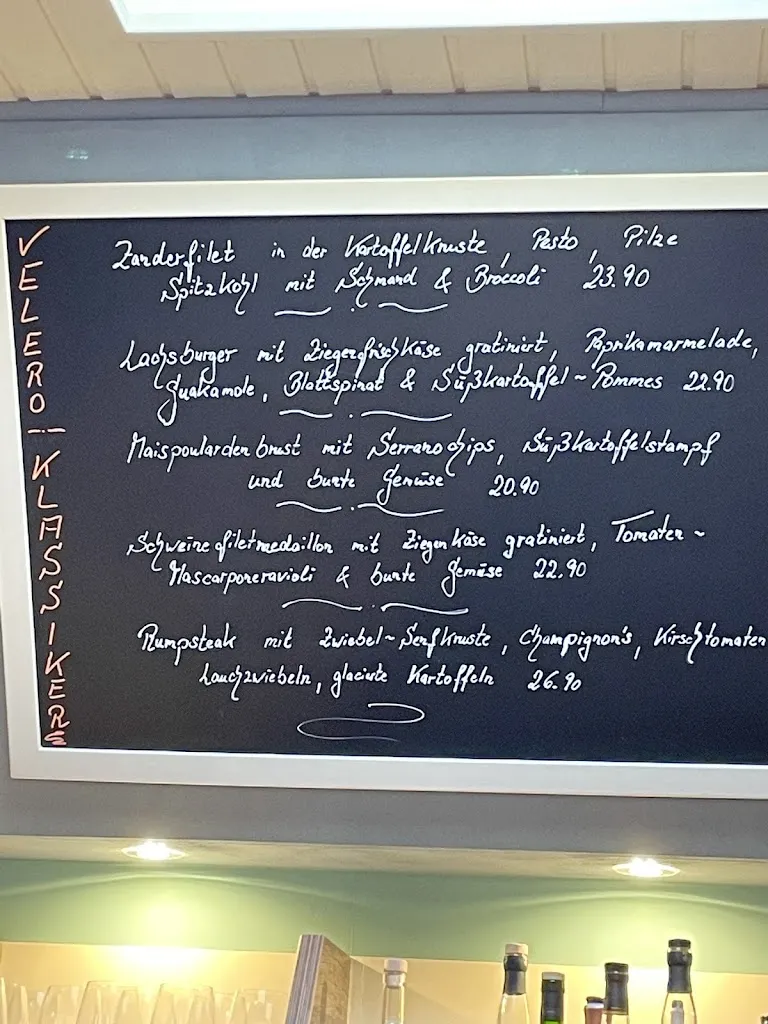 VELERO-KLASSIKER
Zanderfilet in der Kartoffelkruste, Pesto, Pilze
Spitzkohl mit Schmand & Broccoli 23.90
Lachsburger mit Ziegenfrischkäse gratiniert, Paprikamarmelade,
Guakamole, Blattspinat & Süßkartoffel~Pommes 22.90
Maispoulardenbrust mit Serranochips, Süßkartoffelstampf
und bunte Gemüse 20.90
Schweinefiletmedaillon mit Ziegenkäse gratiniert, Tomaten~
Mascarponeravioli & bunte Gemüse 22.90
Rumpsteak mit Zwiebel~Senfkruste, Champignon's, Kirschtomaten
Lauchzwiebeln, glacierte Kartoffeln 26.90